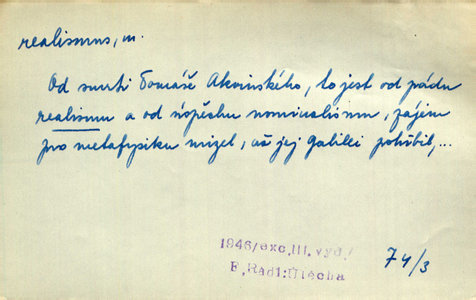 realismus, m.
Od smrti Tomáše Akvinského, to jest od pádu
realismu a od úspěchu nominalismu, zájem
pro metafysiku mizel, až jej Galilei pohřbil,...
1946/exc.III.vyd/
E.Rádl:Útěcha
74/3